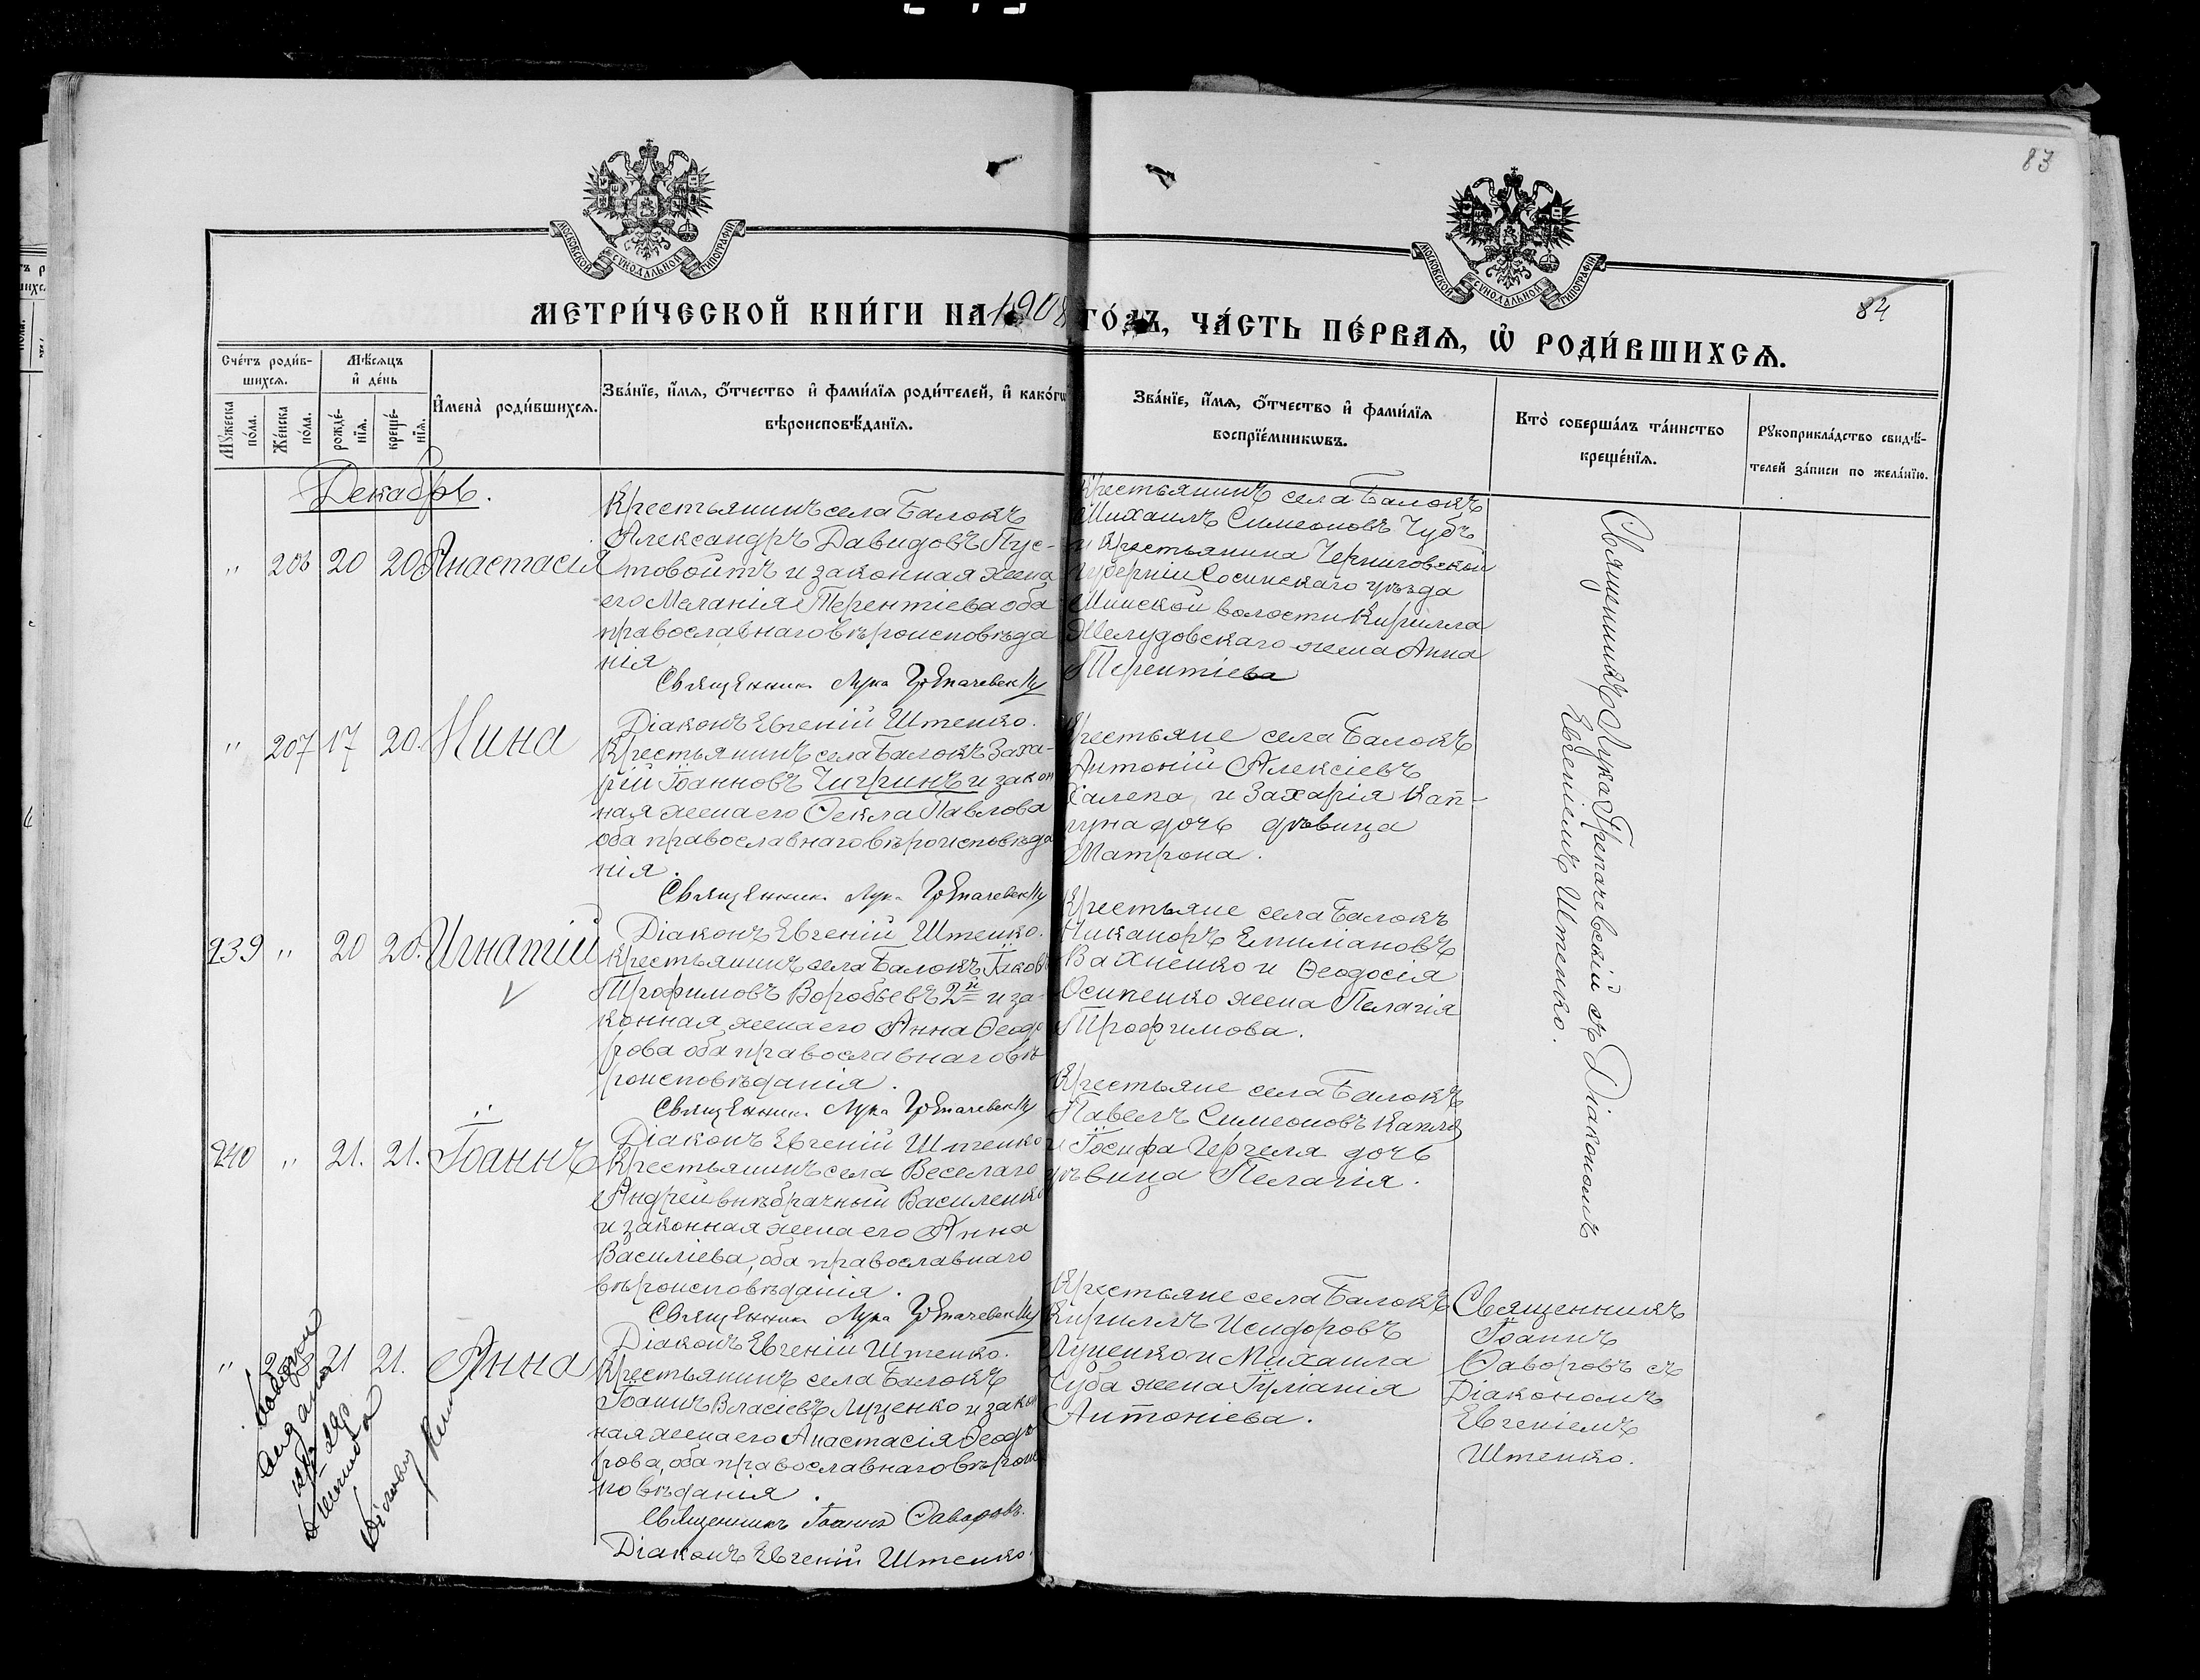 83
МОСКОВСКОЙ СѴНОДАЛЬНОЙ ТИПОГРАФІИ
МОСКОВСКОЙ СѴНОДАЛЬНОЙ ТИПОГРАФІИ
84
МЕТРИ́ЧЕСКОЙ КНИ́ГИ НА 1908 ГО́ДЪ, ЧА́СТЬ ПЕ́РВАѦ, Ѡ РОДИ́ВШИХСѦ.
Сче́тъ роди́в-
шихсѧ.
Мꙋ́жеска
по́ла.
Же́нска
по́ла.
Мѣ́сѧцъ
и҆ де́нь
рожде́-
нїѧ.
креще́-
нїѧ.
И҆мена̀ роди́вшихсѧ.
Зва́нїе, и҆́мѧ, ѻ҆́тчество и҆ фами́лїѧ роди́телей, и҆ како́гѡ
вѣроисповѣ́данїѧ.
Зва́нїе, и҆́мѧ, ѻ҆́тчество и҆ фами́лїѧ
воспрїе́мникѡвъ.
Кто̀ соверша́лъ та́инство
креще́нїѧ.
Рꙋкоприкла́дство свидѣ́-
телей за́писи по жела́нїю.
Декабрь.
" 206 20 20 Анастасія
Крестьянинъ села Балокъ
Александръ Давидовъ Пус-
товойтъ и законная жена
его Меланія Терентіева оба
православнаго вѣроисповѣда
нія
Священник Лука Грепачевскій
Діаконъ Евгеній Штенко.
Крестьянинъ села Балокъ
Михаилъ Симеоновъ Чубъ
и Крестьянина Черниговской
губерніи Сосницкаго уѣзда
Минской волости Кирилла
Желудовскаго жена Анна
Терентіева
Священникъ Лука Грепачевскій съ Діакономъ
Евгеніемъ Штенко.
" 207 17 20. Нина
Крестьянинъ села Балокъ Заха-
рій Іоанновъ Чигринъ и закон
ная жена его Ѳекла Павлова
оба православнаго вѣроисповѣда
нія.
Священник Лука Грепачевскій
Діаконъ Евгеній Штенко.
Крестьяне села Балокъ
Антоній Алексіевъ
Халепа, и Захарія Кап-
луна дочь дѣвица
Матрона.
239 " 20 20. Игнатій
Крестьянинъ села Балокъ Іаковъ
Трофимовъ Воробьевъ 2й и за-
конная жена его Анна Ѳеодо
рова оба православнаго вѣ
роисповѣданія.
Священник Лука Грепачевскій
Діаконъ Евгеній Штенко
Крестьяне села Балокъ
Никаноръ Емиліановъ
Вахненко и Ѳеодосія
Осипенко жена Пелагія
Трофимова.
240 " 21. 21. Іоаннъ
Крестьянинъ села Веселаго
Андрей внѣбрачный Василенко
и законная жена его Анна
Василіева, оба православнаго
вѣроисповѣданія.
Священник Лука Грепачевскій
Діаконъ Евгеній Штенко.
Крестьяне села Балокъ
Павелъ Симеоновъ
и Іосифа Гергеля дочь
дѣвица Пелагія.
" 21 21. Анна
Крестьянинъ села Балокъ
Іоаннъ Власіевъ Луценко и закон
ная жена его Анастасія Ѳеодо
рова, оба православнаго вѣроис
повѣданія.
Священникъ Іоаннъ Ѳаворовъ.
Діаконъ Евгеній Штенко.
Крестьяне села Балокъ
Кириллъ Исидоровъ
Луценко и Михаила
Чуба жена Іуліанія
Антоніева.
Священникъ
Іоаннъ
Ѳаворовъ съ
Діакономъ
Евгеніемъ
Штенко.